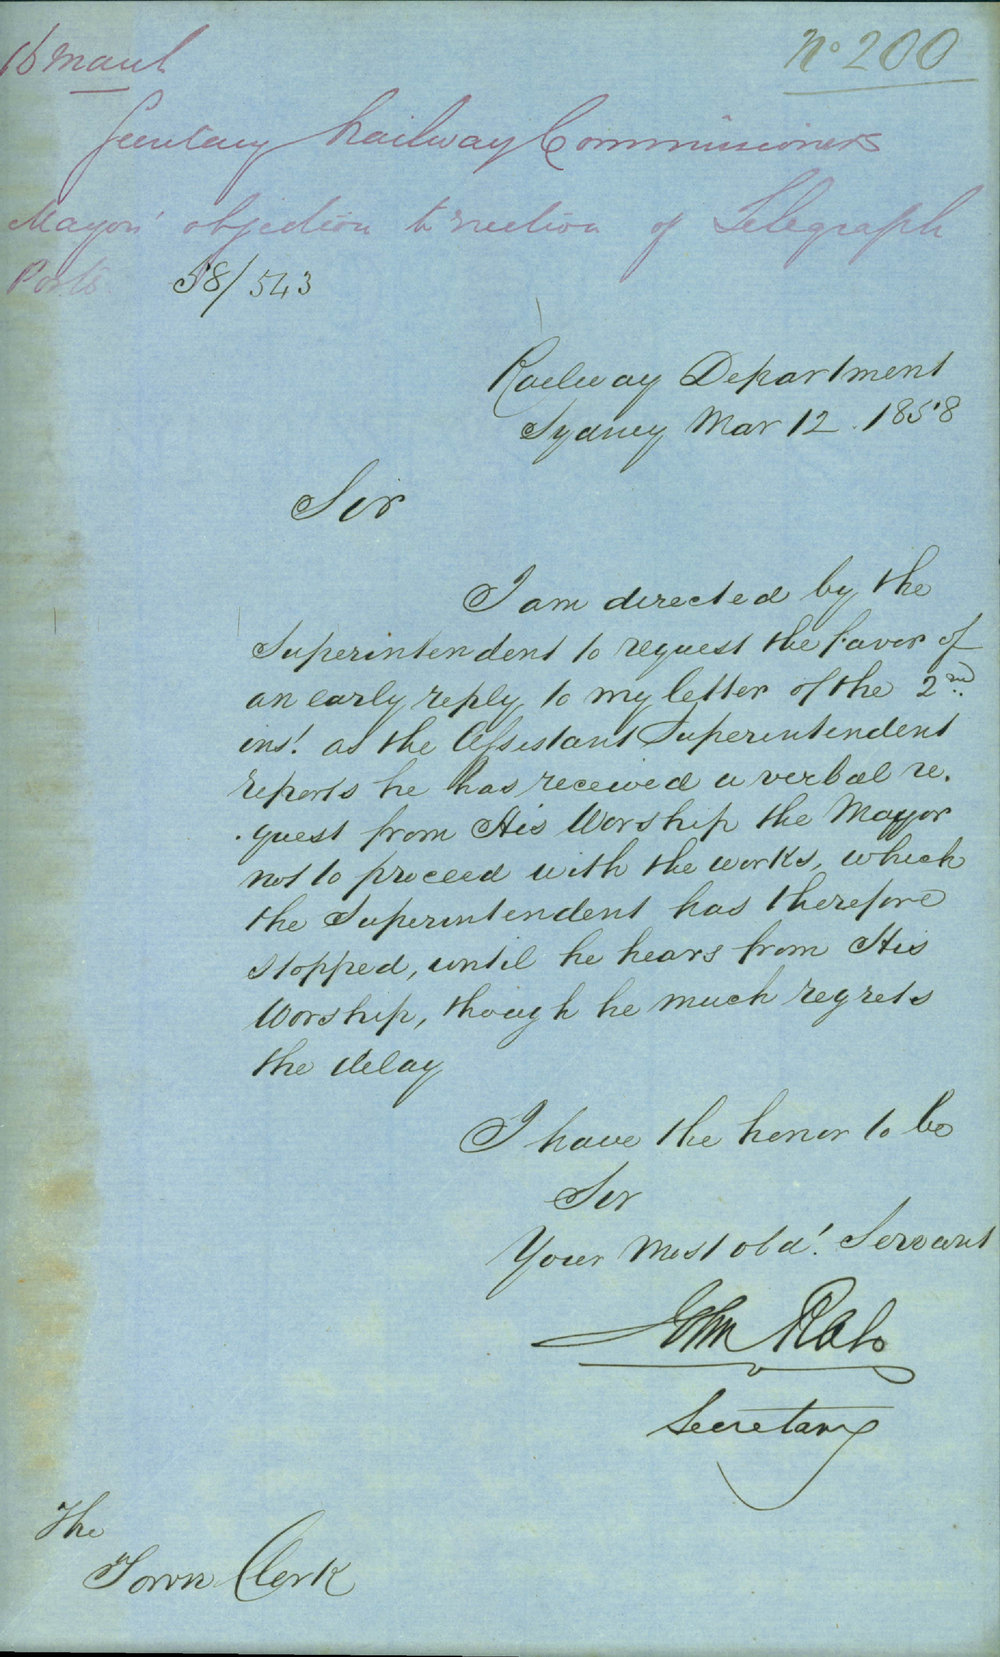 16 March
No 200
Secretary Railway Commissioners
Mayors' objection to erection of Telegraph
Posts 58/543
Railway Department
Sydney Mar 12. 1858
Sir
I am directed by the
Superintendent to request the favor of
an early reply to my letter of the 2nd
inst. as the Assistant Superintendent
reports he has received a verbal re-
quest from His Worship the Mayor
not to proceed with the works, which
the Superintendent has therefore
stopped, until he hears from His
Worship, though he much regrets
the delay
I have the honor to be
Sir
Your Most obdt. Servant
John Rae
Secretary
The
Town Clerk